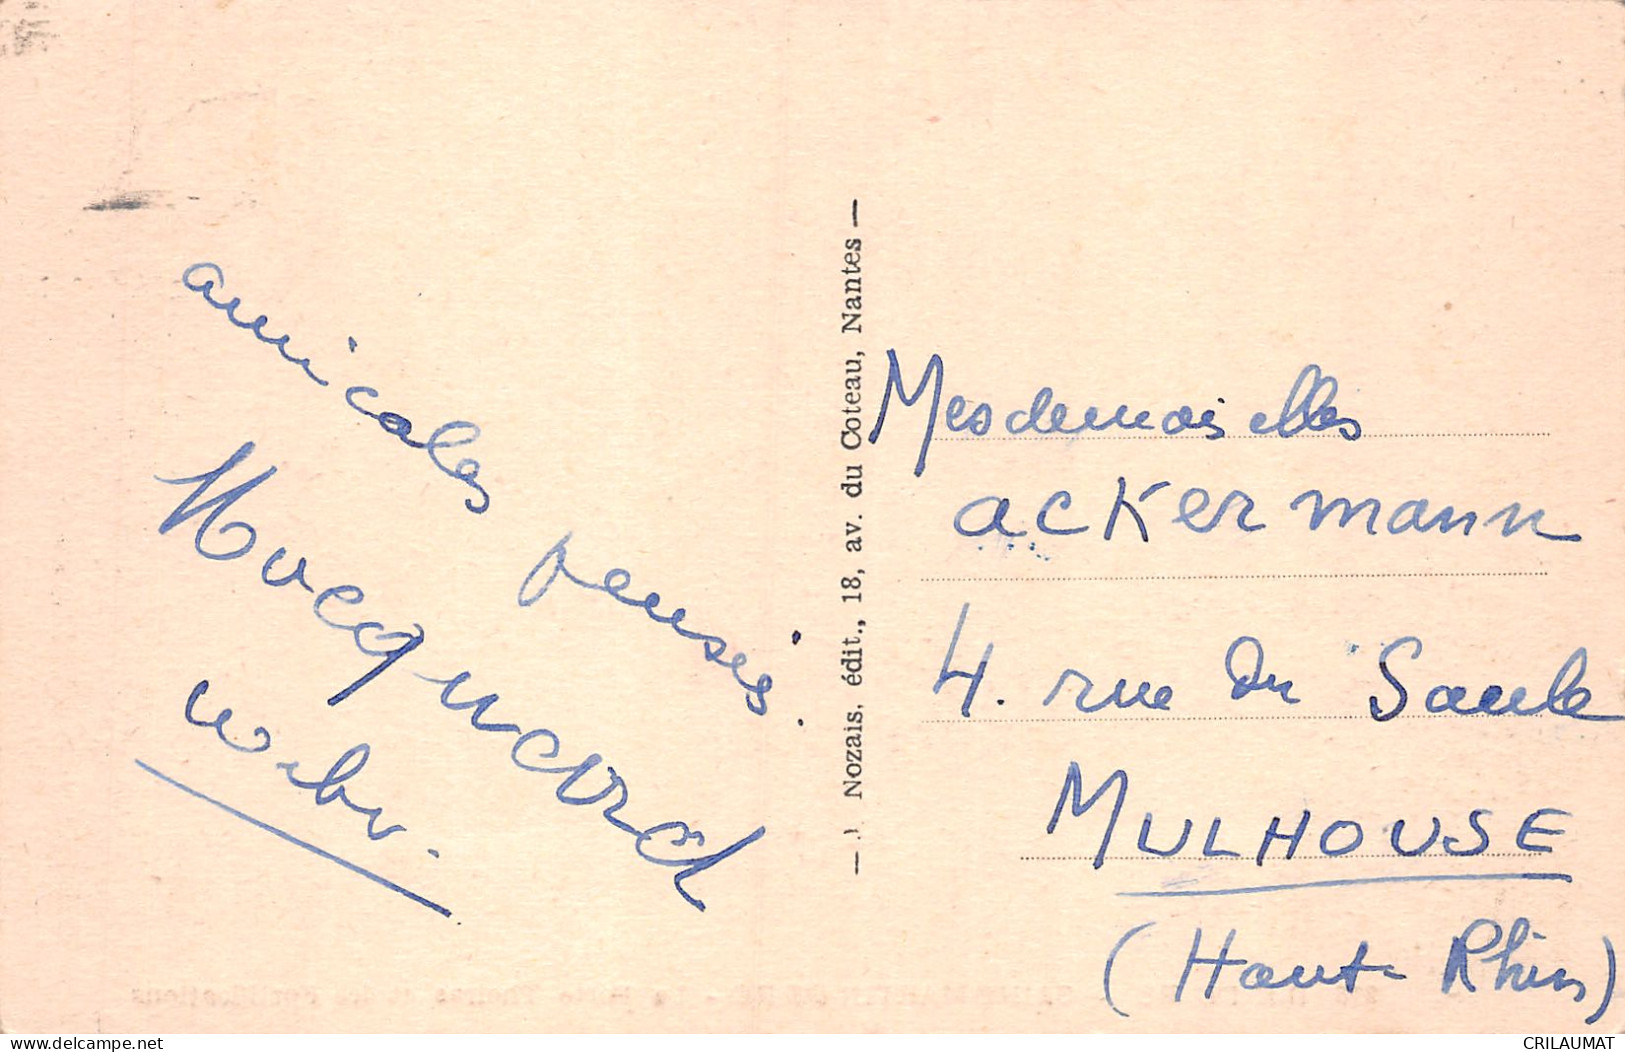 amicales pensées.
Mocquard
— J Nozais, édit., 18, av. du Coteau, Nantes —
Mesdemoiselles
ackermann
4. rue du Saule
MULHOUSE
(Haut-Rhin)
www.delcampe.net
CRILAUMAT